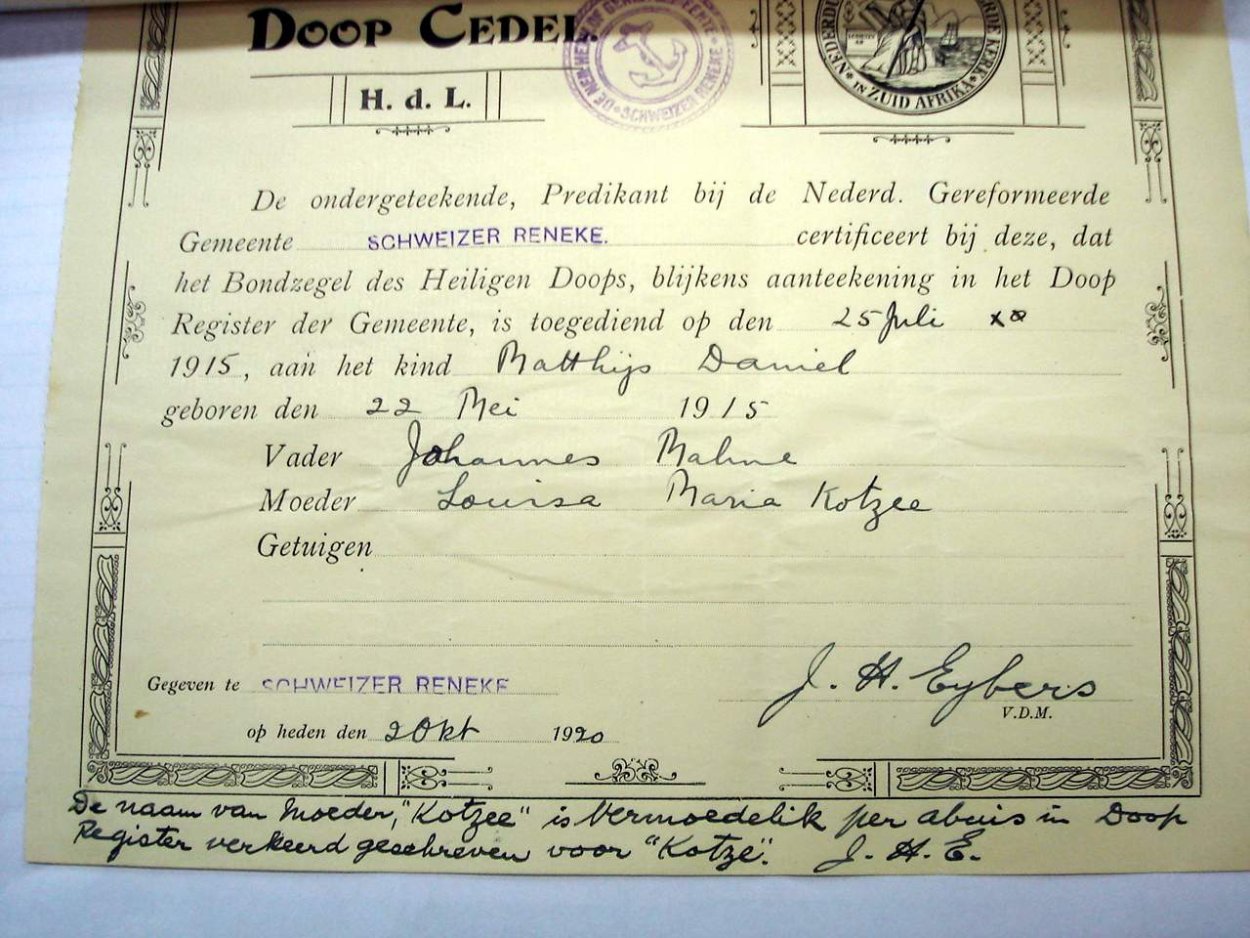 DOOP CEDEL.
H. d. L.
SCHWEIZER RENEKE
IN ZUID AFRIKA
De ondergeteekende, Predikant bij de Nederd. Gereformeerde
Gemeente SCHWEIZER RENEKE. certificeert bij deze, dat
het Bondzegel des Heiligen Doops, blijkens aanteekening in het Doop
Register der Gemeente, is toegediend op den 25 Juli
1915, aan het kind Matthijs Daniel
geboren den 22 Mei 1915
Vader Johannes Mahne
Moeder Louisa Maria Kotzee
Getuigen
Gegeven te SCHWEIZER RENEKE
J. H. Eybers
V.D.M.
op heden den 2 Okt 1920
De naam van Moeder, "Kotzee" is Vermoedelik per abuis in Doop
Register verkeerd geschreven voor "Kotze". J. H. E.